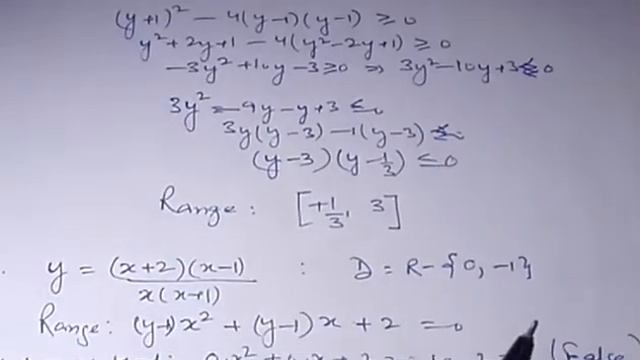 (y+1)² − 4(y−1)(y−1) ≥ 0
y² + 2y + 1 − 4(y² − 2y + 1) ≥ 0
−3y² + 10y − 3 ≥ 0 ⇒ 3y² − 10y + 3 ≤ 0
3y² − 9y − y + 3 ≤ 0
3y(y − 3) − 1(y − 3) ≤ 0
(y − 3)(y − 1/3) ≤ 0
Range : [+1/3, 3]
y = (x+2)(x−1) / x(x+1) : D = R − {0, −1}
Range: (y−1)x² + (y−1)x + 2 = 0
(False)